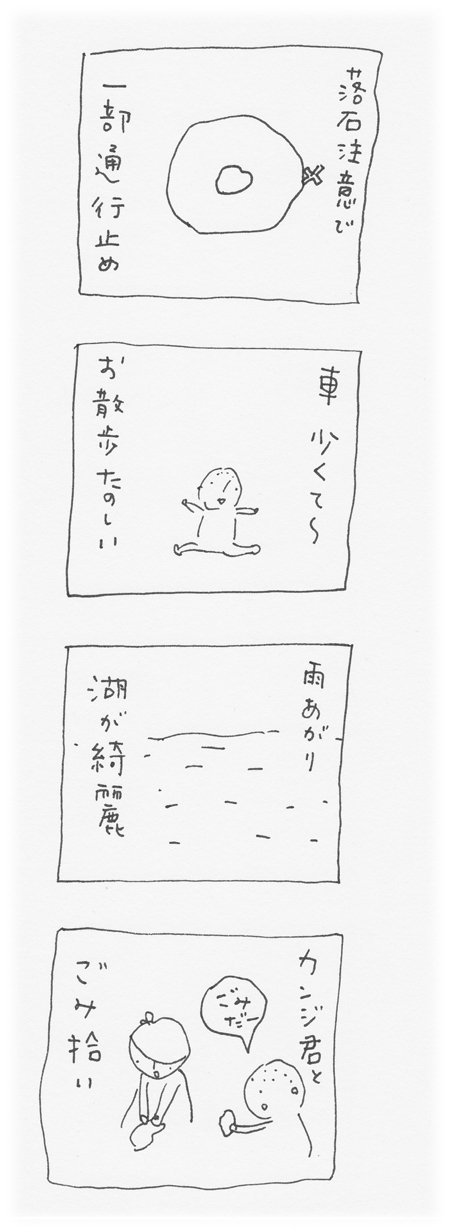 落石注意で
一部通行止め
車 少くて〜
お散歩たのしい
雨あがり
湖が綺麗
カンジ君と
ごみ
だー
ごみ拾い